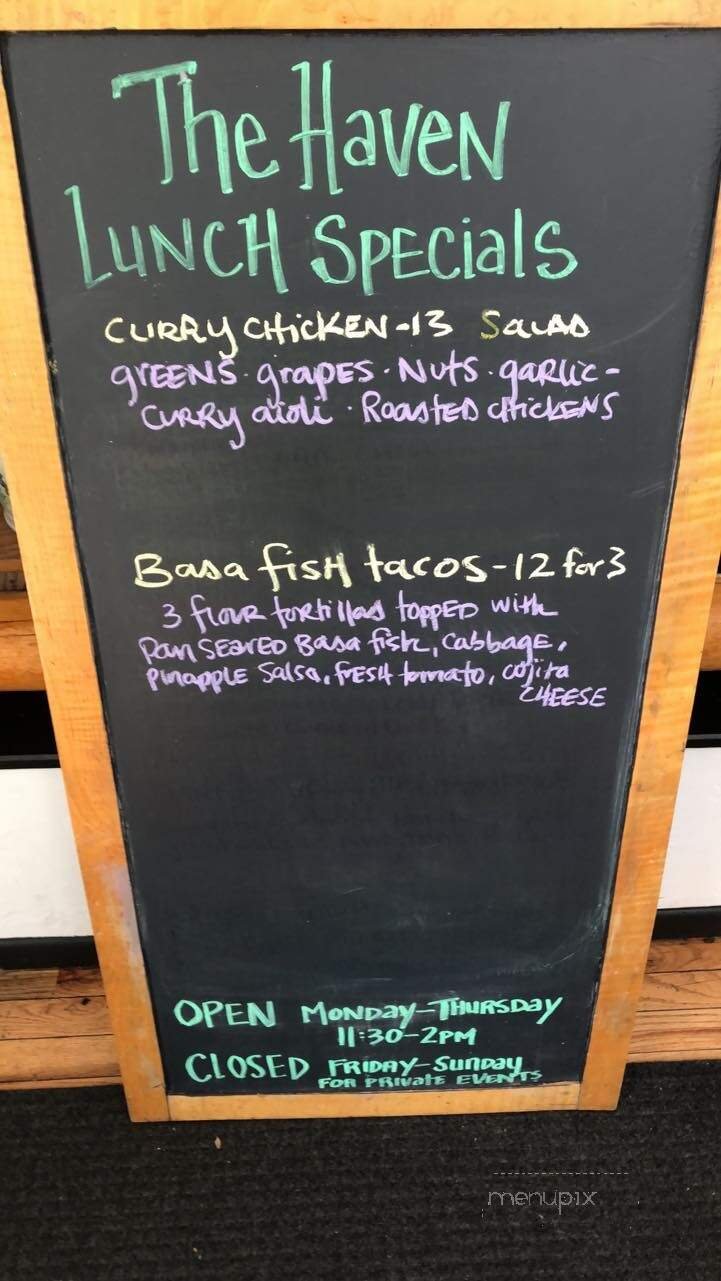 The Haven
Lunch Specials
Curry Chicken-13 Salad
greens · grapes · Nuts · garlic-
curry aioli · Roasted chickens
Basa fish tacos-12 for 3
3 flour tortillas topped with
pan seared Basa fish, cabbage,
pinapple salsa, fresh tomato, cojita
cheese
OPEN Monday-Thursday
11:30-2PM
CLOSED Friday-Sunday
for private events
menupix